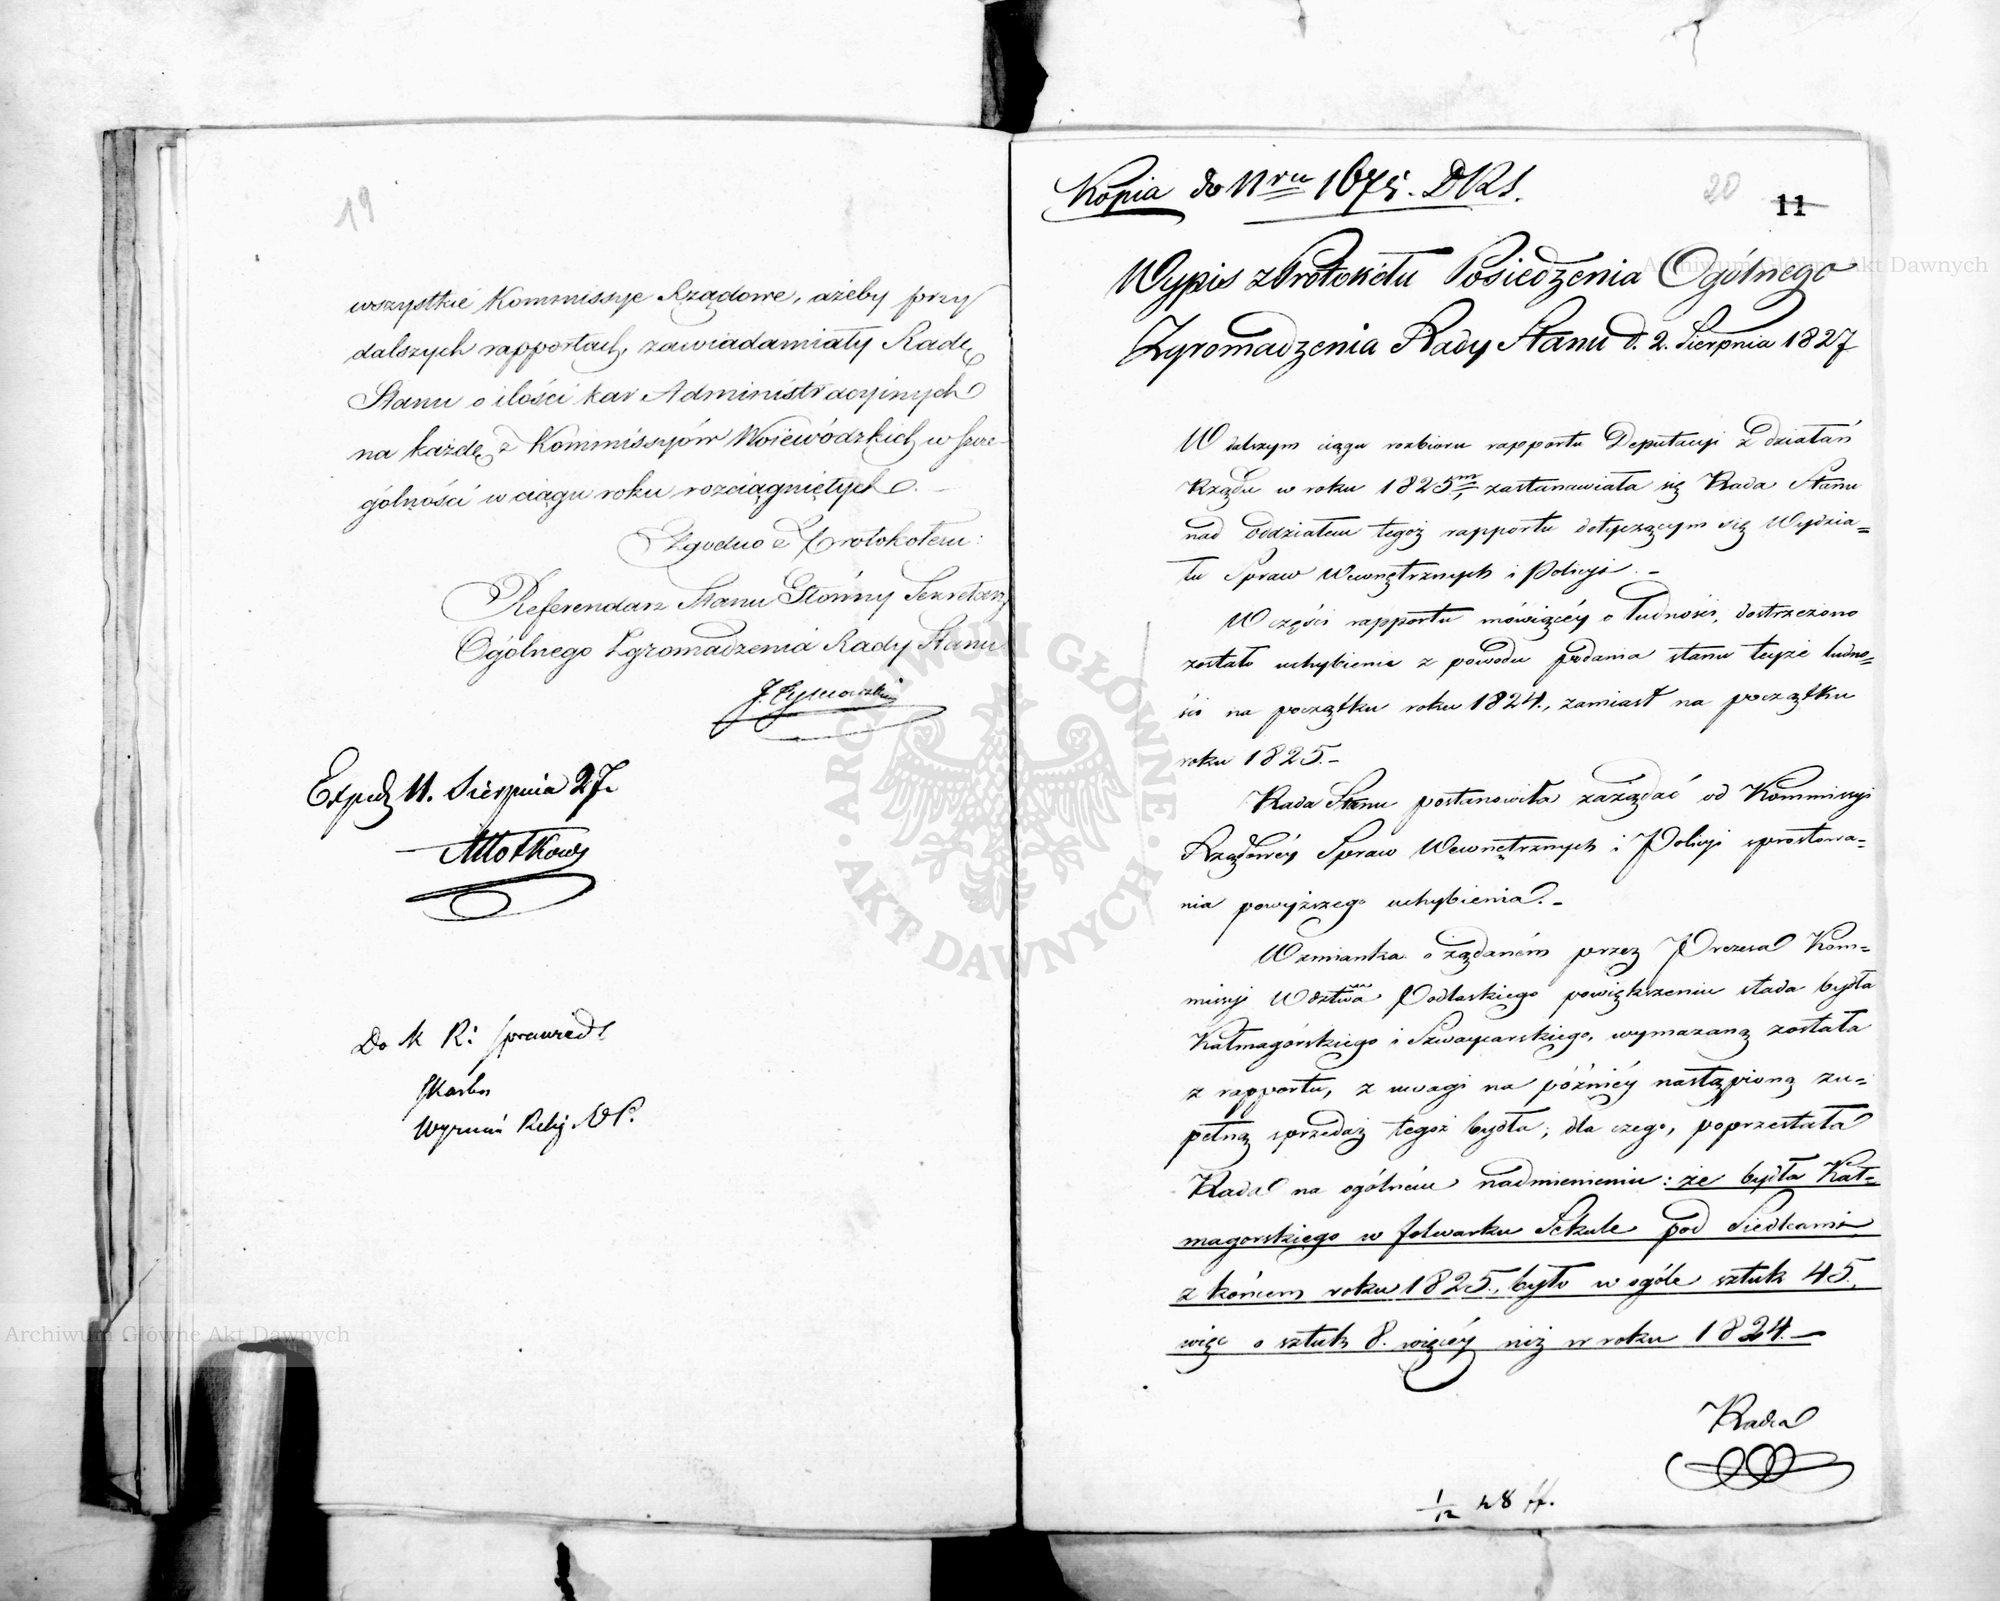 19
wszystkie Kommissye Rządowe, ażeby przy
dalszych rapportach, zawiadamiały Radę
Stanu o ilości kar Administracyinych
na każdą z Kommissyów Woiewódzkich w szcze-
gólności w ciągu roku rozciągniętych. –
Zgodno z Protokołem:
Referendarz Stanu Główny Sekretarz
Ogólnego Zgromadzenia Rady Stanu
Exped 11. Sierpnia 27.
Do K R: Sprawiedl
Skarbu
Wyznań Relig. OP.
Kopia do Nru 1675. DRS.
20
11
Wypis z Protokółu Posiedzenia Ogólnego
Zgromadzenia Rady Stanu d. 2. Sierpnia 1827
W dalszym ciągu rozbioru rapportu Deputacyi z działań
Rządu w roku 1825m, zastanawiała się Rada Stanu
nad oddziałem tegoż rapportu dotyczącym się Wydzia=
łu Spraw Wewnętrznych i Policyi. –
W części rapportu mówiącéy o ludności, dostrzeżono
zostało uchybienie z powodu podania stanu teyże ludno=
ści na początku roku 1824., zamiast na początku
roku 1825. –
Rada Stanu postanowiła zażądać od Kommissyi
Rządowéy Spraw Wewnętrznych i Policyi sprostowa=
nia powyższego uchybienia. –
Wzmianka o żądaném przez Prezesa Kom=
missyi Wdztwa Podlaskiego powiększeniu stada bydła
Kałmagórskiego i Szwaycarskiego, wymazaną została
z rapportu, z uwagi na późniéy nastąpioną zu=
pełną sprzedaż tegoż bydła; dla czego, poprzestała
Rada na ogólném nadmienieniu: że bydła Kał=
magorskiego w folwarku Sekule pod Siedlcami
z końcem roku 1825., było w ogóle sztuk 45.,
więc o sztuk 8. więcéy niż w roku 1824. –
Rada
1/12 28 ff.
Archiwum Główne Akt Dawnych
Archiwum Główne Akt Dawnych
ARCHIWUM GŁÓWNE · AKT DAWNYCH ·